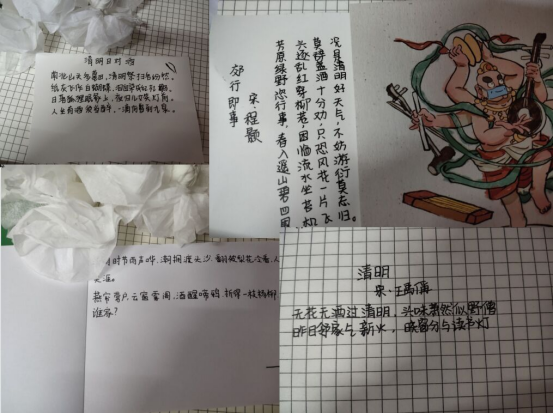 清明日对酒
南北山头多墓田,清明祭扫各纷然。
纸灰飞作白蝴蝶,泪血染成红杜鹃。
日落狐狸眠冢上,夜归儿女笑灯前。
人生有酒须当醉,一滴何曾到九泉。
郊行即事
宋·程颢
芳原绿野恣行事,春入遥山碧四围
兴逐乱红穿柳巷,困临流水坐苔矶
莫辞盏酒十分劝,只恐风花一片飞
清明好天气,不妨游衍莫忘归。
时节雨声哗,潮拥渡头沙,翻被梨花冷看,人
天涯。
燕家莺户,云窗雾阁,酒醒啼鸦,折得一枝杨柳
谁家?
清明
宋·王禹偁
无花无酒过清明,兴味萧然似野僧
昨日邻家乞新火,晓窗分与读书灯